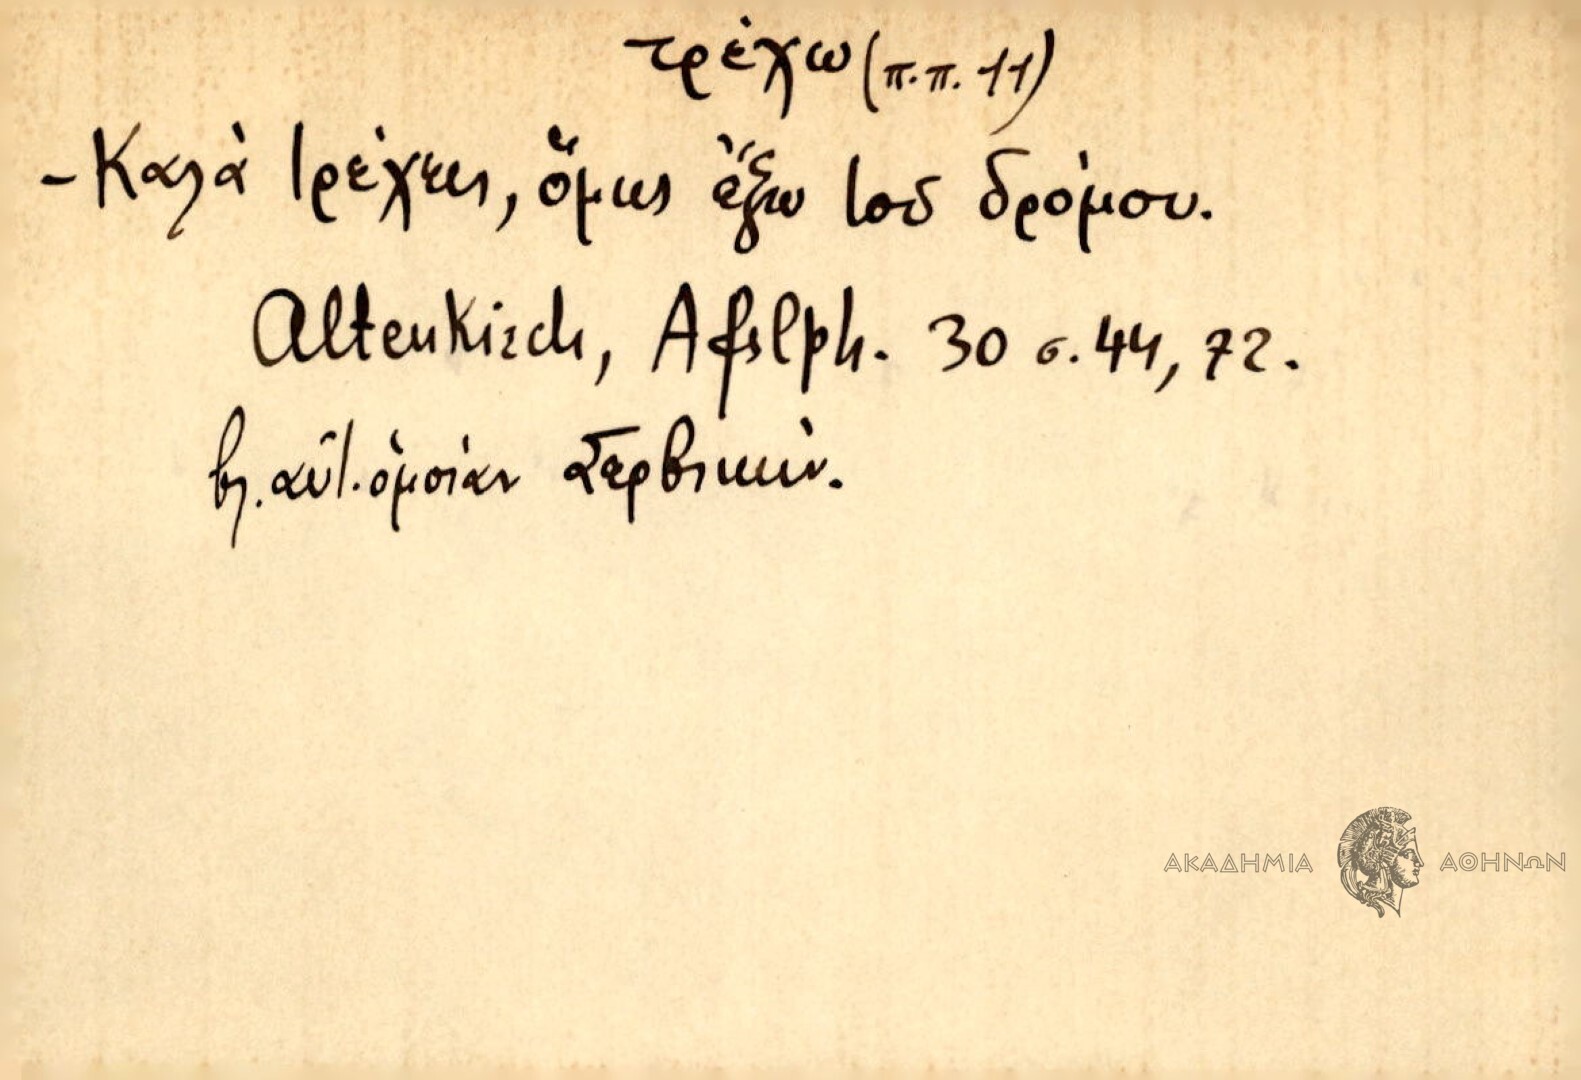 τρέχω (π.π. 11)
- Καλὰ τρέχεις, ὅμως ἔξω τοῦ δρόμου.
Altenkirch, Afslph. 30 σ. 44, 72.
βλ. αὐτ. ὁμοίαν Σερβικήν.
ΑΚΑΔΗΜΙΑ ΑΘΗΝΩΝ